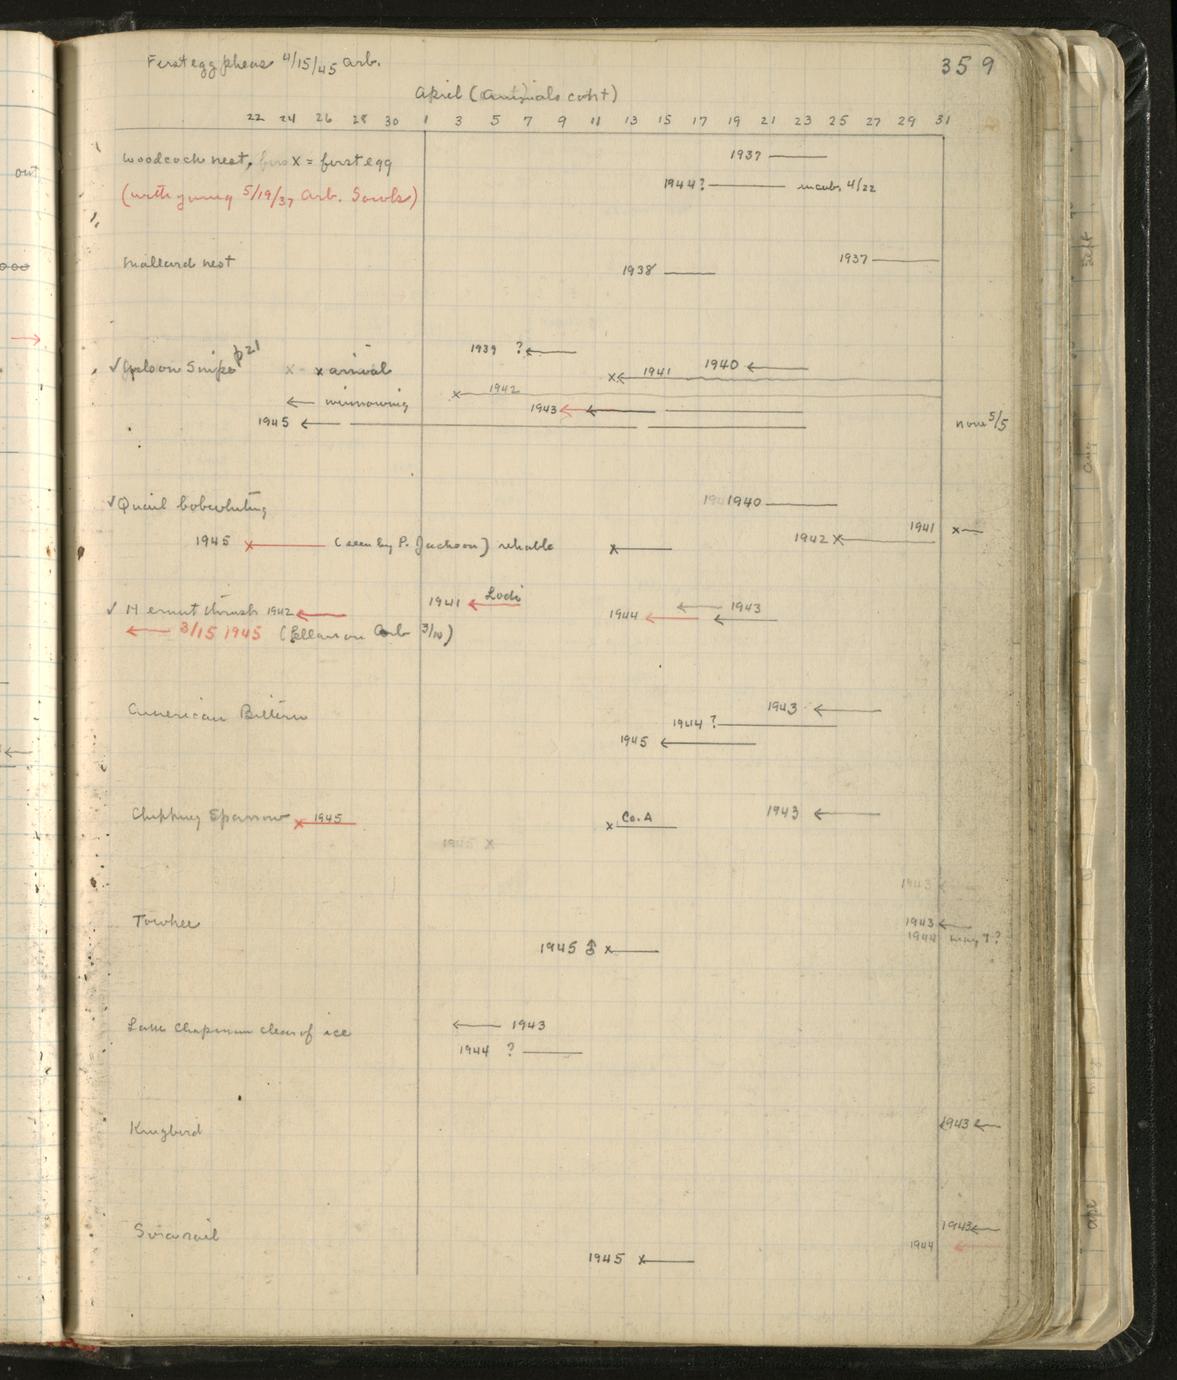 First egg pheas 4/15/45 Arb.
359
April (Animals cont)
22 24 26 28 30 1 3 5 7 9 11 13 15 17 19 21 23 25 27 29 31
out
Woodcock nest, X = first egg 1937
(with young 5/19/37 Arb. Sowls) 1944? incub. 4/22
Mallard nest 1938 1937
✓ Wilson Snipe p21 x arrival 1939 ? 1940
x 1941
← winnowing x 1942
1943
1945 none 5/5
✓ Quail bobwhiting 1940
1941 x
1945 x (seen by P. Jackson) reliable x 1942 x
✓ Hermit thrush 1942 1941 Lodi 1944 1943
← 3/15 1945 ( Arb 3/10)
American Bittern 1943
1944 ?
1945
Chipping Sparrow x 1945 x Co. A 1943
1945 x
1943
Towhee 1943
1944 May 7?
1945 ♂ x
Lake Chapman clear of ice 1943
1944 ?
Kingbird 1943
Sora rail 1943
1944
1945 x